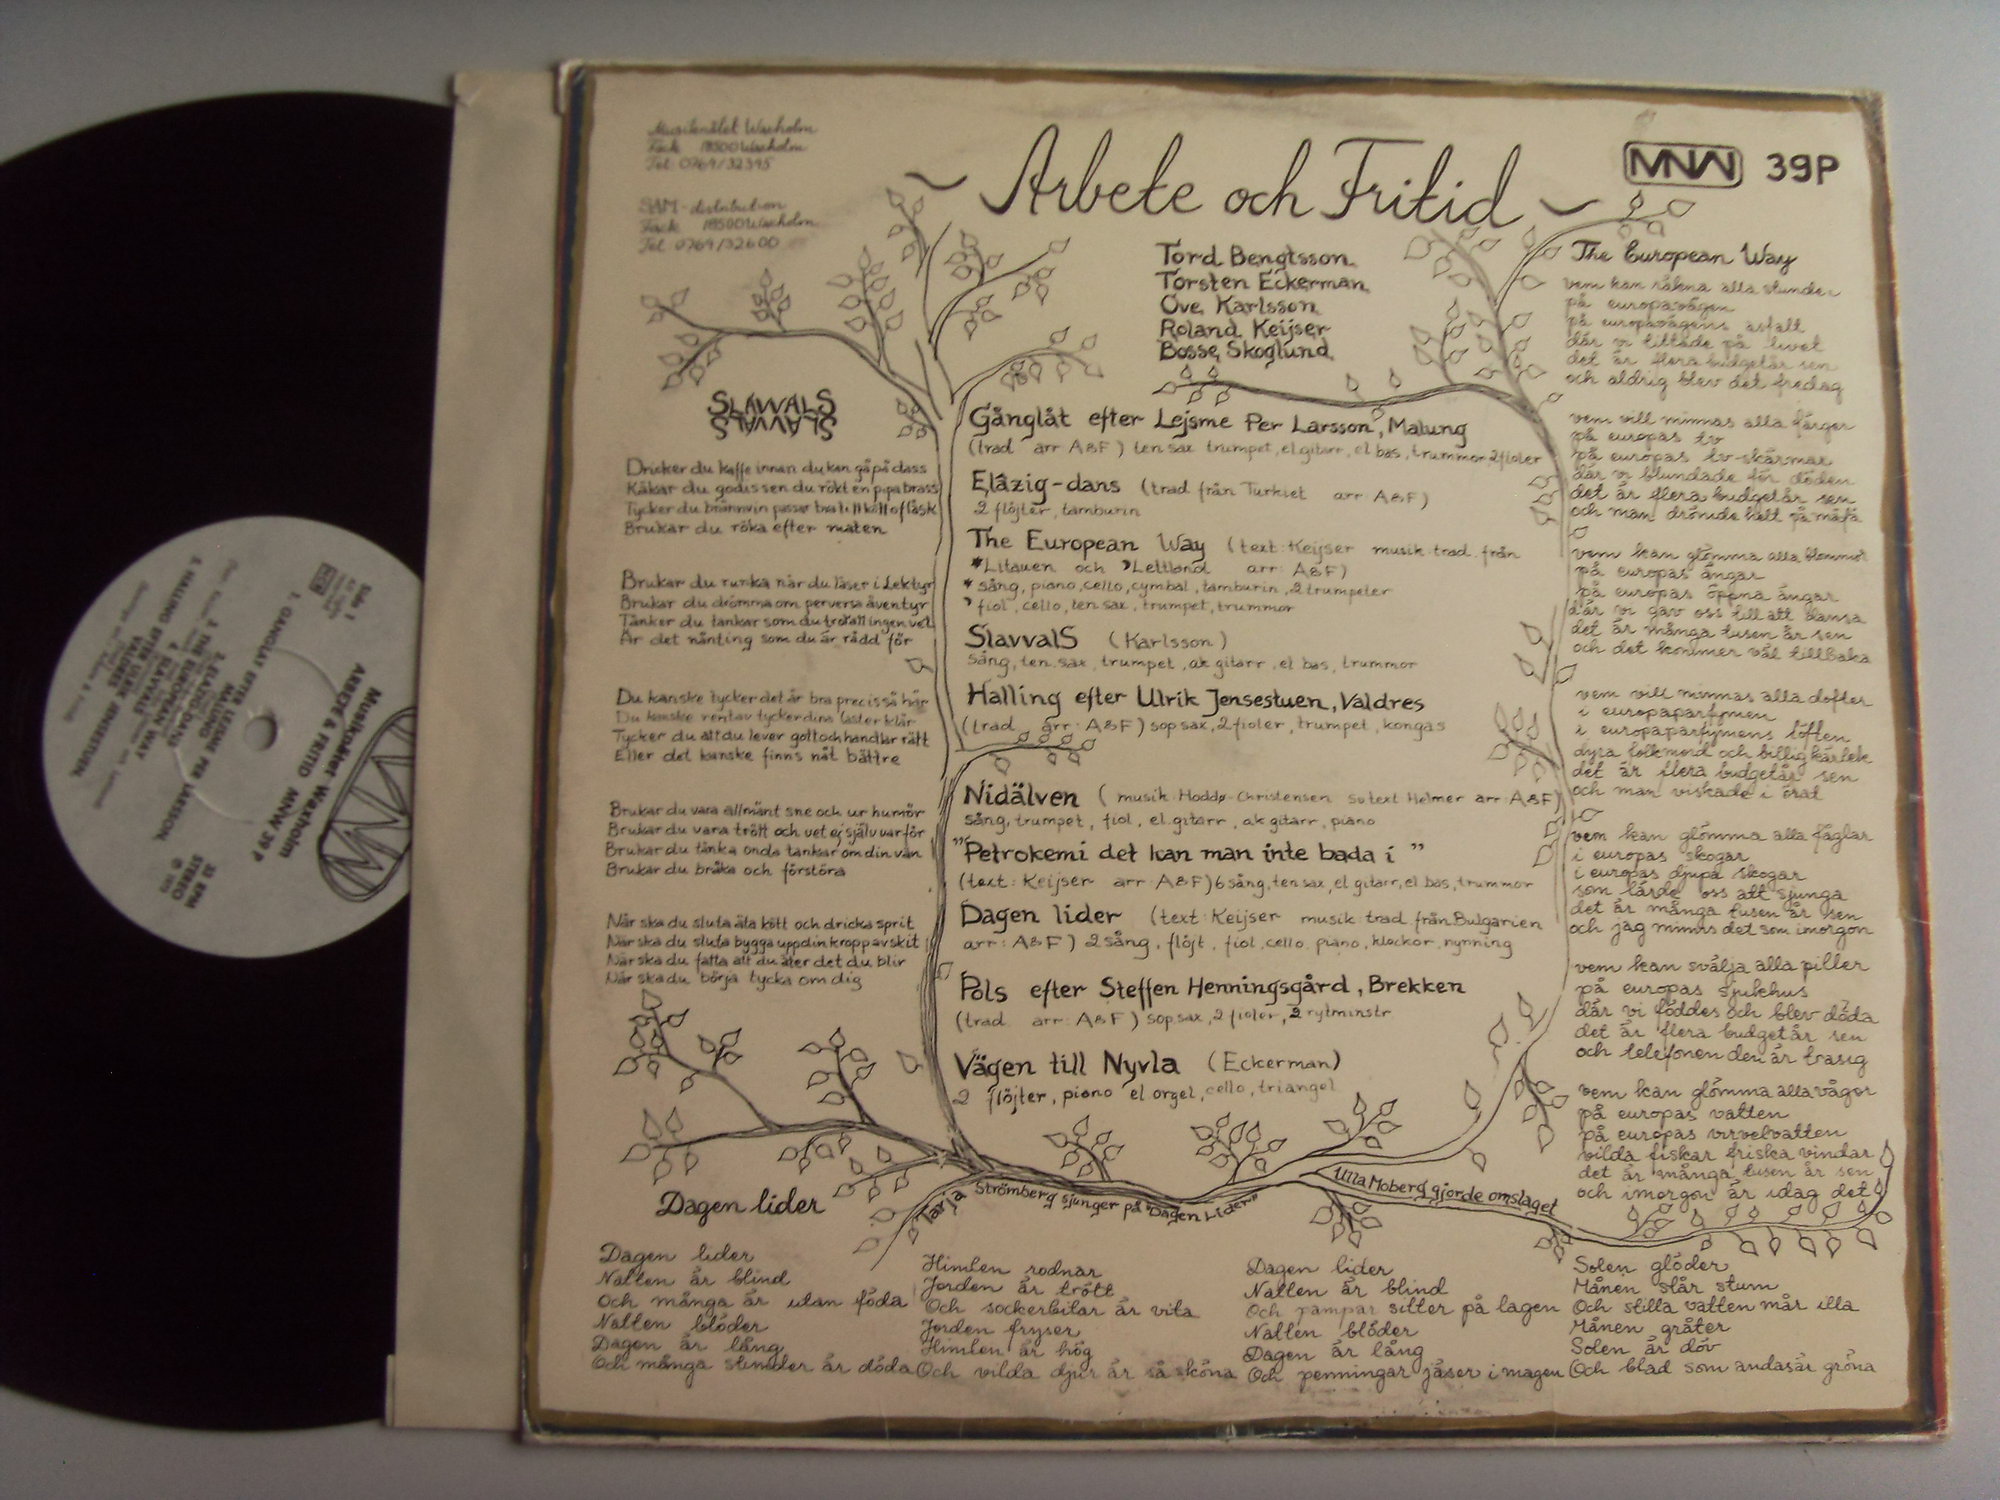 Musiknätet Waxholm
Fack 18500 Waxholm
Tel 0764/32395
SAM-distribution
Fack 18500 Waxholm
Tel 0764/32600
~ Arbete och Fritid ~
MNW 39P
Tord Bengtsson
Torsten Eckerman
Ove Karlsson
Roland Keijser
Bosse Skoglund
Gånglåt efter Lejsme Per Larsson, Malung
(trad arr A&F) ten sax trumpet, el gitarr, el bas, trummor, 2 fioler
Elâzig-dans (trad från Turkiet arr A&F)
2 flöjter, tamburin
The European Way (text: Keijser musik trad. från
*Litauen och ’Lettland arr: A&F)
* sång, piano, cello, cymbal, tamburin, 2 trumpeter
’ fiol, cello, ten sax, trumpet, trummor
SlavvalS (Karlsson)
sång, ten. sax, trumpet, ak gitarr, el bas, trummor
Halling efter Ulrik Jensestuen, Valdres
(trad arr: A&F) sop sax, 2 fioler, trumpet, kongas
Nidälven (musik Hoddø-Christensen sv text Helmer arr: A&F)
sång, trumpet, fiol, el. gitarr, ak gitarr, piano
"Petrokemi det kan man inte bada i"
(text: Keijser arr: A&F) 6 sång, ten sax, el gitarr, el bas, trummor
Dagen lider (text: Keijser musik trad. från Bulgarien
arr: A&F) 2 sång, flöjt, fiol, cello, piano, klockor, nynning
Pols efter Steffen Henningsgård, Brekken
(trad. arr: A&F) sop sax, 2 fioler, 2 rytminstr
Vägen till Nyvla (Eckerman)
2 flöjter, piano el orgel, cello, triangel
SLAVVALS
SLAVVALS
Dricker du kaffe innan du kan gå på dass
Käkar du godis sen du rökt en pipa brass
Tycker du brännvin passar bra till kött o fläsk
Brukar du röka efter maten
Brukar du runka när du läser i Lektyr
Brukar du drömma om perversa äventyr
Tänker du tankar som du tror att ingen vet
Är det nånting som du är rädd för
Du kanske tycker det är bra precis så här
Du kanske rentav tycker dina laster klär
Tycker du att du lever gott och handlar rätt
Eller det kanske finns nåt bättre
Brukar du vara allmänt sne och ur humör
Brukar du vara trött och vet ej själv varför
Brukar du tänka onda tankar om din vän
Brukar du bråka och förstöra
När ska du sluta äta kött och dricka sprit
När ska du sluta bygga upp din kropp av skit
När ska du fatta att du äter det du blir
När ska du börja tycka om dig
The European Way
vem kan räkna alla stunder
på europavägen
på europavägens asfalt
där vi tittade på livet
det är flera budgetår sen
och aldrig blev det fredag
vem vill minnas alla färger
på europas tv
på europas tv-skärmar
där vi blundade för döden
det är flera budgetår sen
och man drömde helt på måfå
vem kan glömma alla blommor
på europas ängar
på europas öppna ängar
där vi gav oss till att dansa
det är många tusen år sen
och det kommer väl tillbaka
vem vill minnas alla dofter
i europaparfymen
i europaparfymens löften
dyra folkmord och billig kärlek
det är flera budgetår sen
och man viskade i örat
vem kan glömma alla fåglar
i europas skogar
i europas djupa skogar
som lärde oss att sjunga
det är många tusen år sen
och jag minns det som imorgon
vem kan svälja alla piller
på europas sjukhus
där vi föddes och blev döda
det är flera budgetår sen
och telefonen den är trasig
vem kan glömma alla vågor
på europas vatten
på europas virvelvatten
vilda fiskar friska vindar
det är många tusen år sen
och imorgon är idag det
Tarja Strömberg sjunger på "Dagen Lider"
Ulla Moberg gjorde omslaget
Dagen lider
Dagen lider
Natten är blind
Och många är utan föda
Natten blöder
Dagen är lång
Och många stunder är döda
Himlen rodnar
Jorden är trött
Och sockerbitar är vita
Jorden fryser
Himlen är hög
Och vilda djur är så sköna
Dagen lider
Natten är blind
Och pampar sitter på lagen
Natten blöder
Dagen är lång
Och penningar jäser i magen
Solen glöder
Månen står stum
Och stilla vatten mår illa
Månen gråter
Solen är döv
Och blad som andas är gröna
Musiknätet Waxholm
ARBETE & FRITID MNW 39 P
Side 1
33 RPM
STEREO
1. GÅNGLÅT EFTER LEJSME PER LARSSON,
MALUNG
2. ELÂZIG-DANS
3. THE EUROPEAN WAY
4. SLAVVALS
5. HALLING EFTER ULRIK JENSESTUEN,
VALDRES